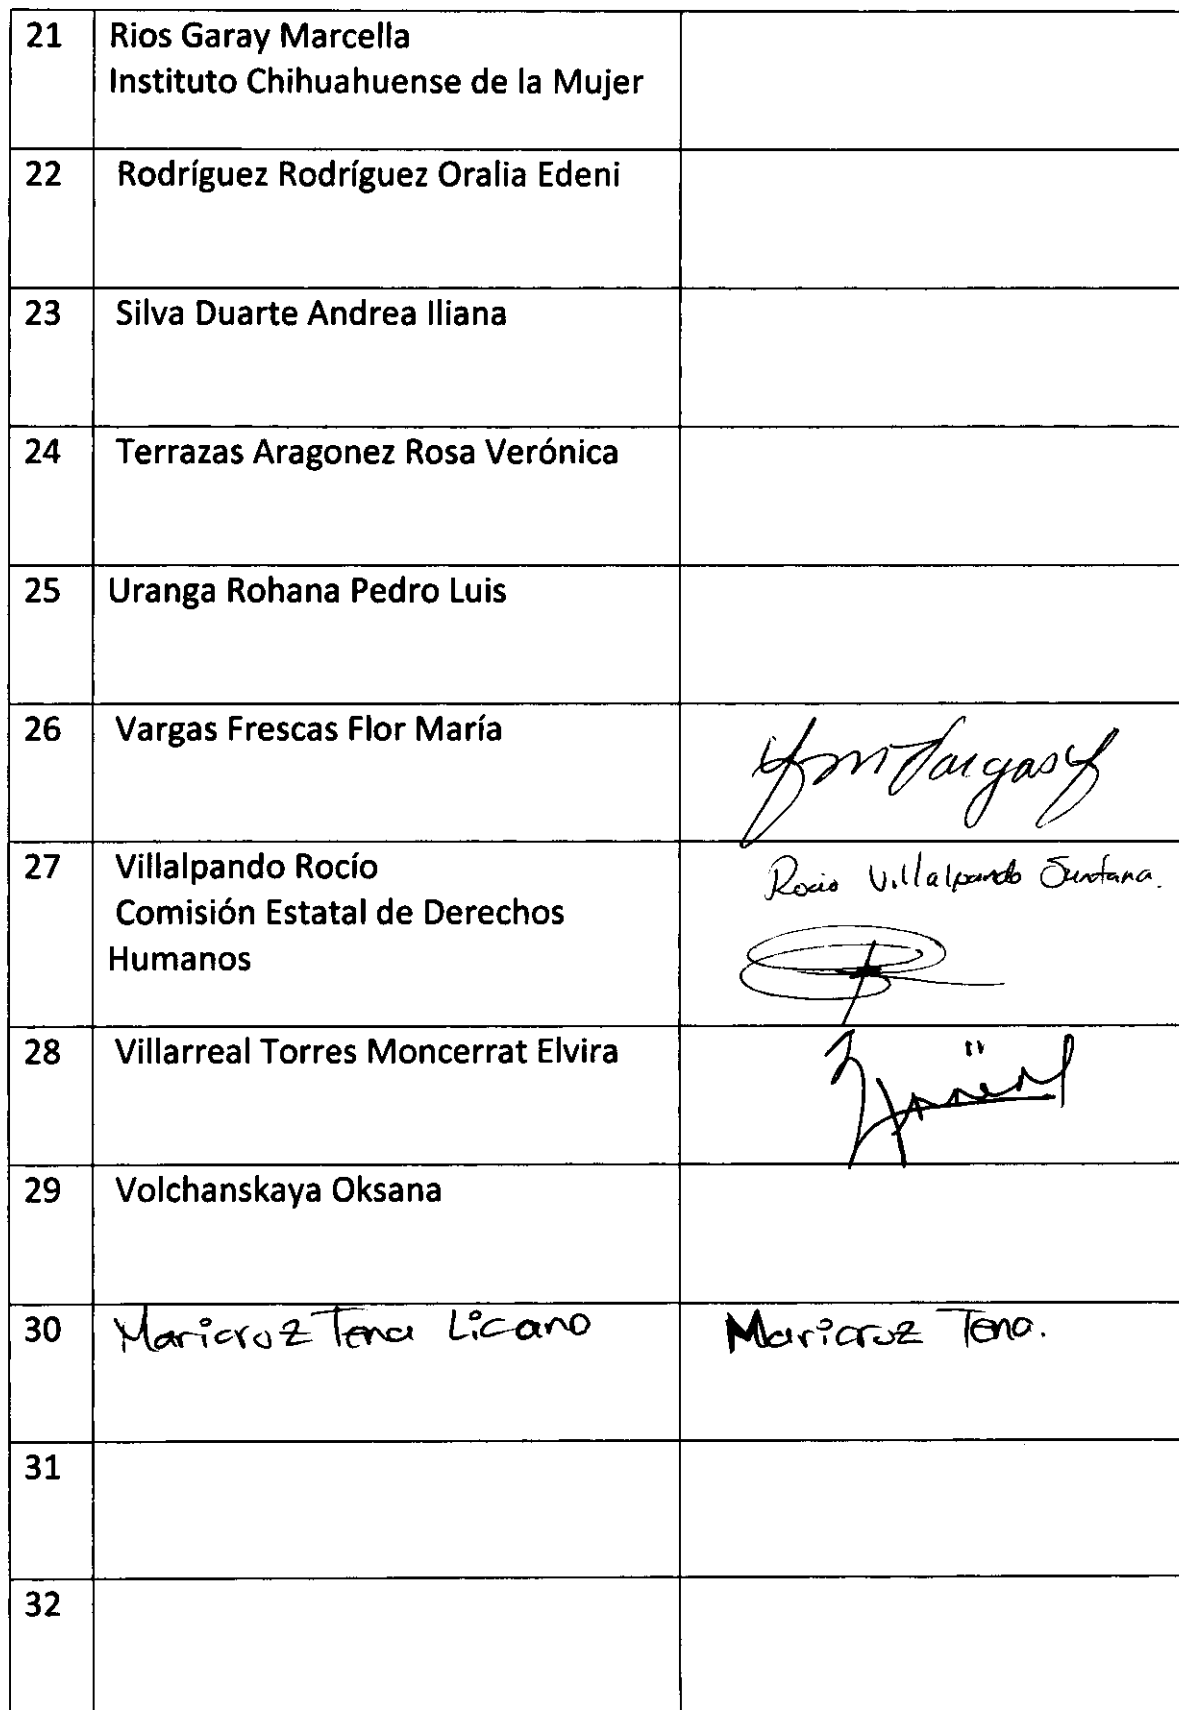 21 Rios Garay Marcella
Instituto Chihuahuense de la Mujer
22 Rodríguez Rodríguez Oralia Edeni
23 Silva Duarte Andrea Iliana
24 Terrazas Aragonez Rosa Verónica
25 Uranga Rohana Pedro Luis
26 Vargas Frescas Flor María
27 Villalpando Rocío Rocio Villalpando Santana.
Comisión Estatal de Derechos
Humanos
28 Villarreal Torres Moncerrat Elvira
29 Volchanskaya Oksana
30 Maricruz Tena Licano Maricruz Tena.
31
32